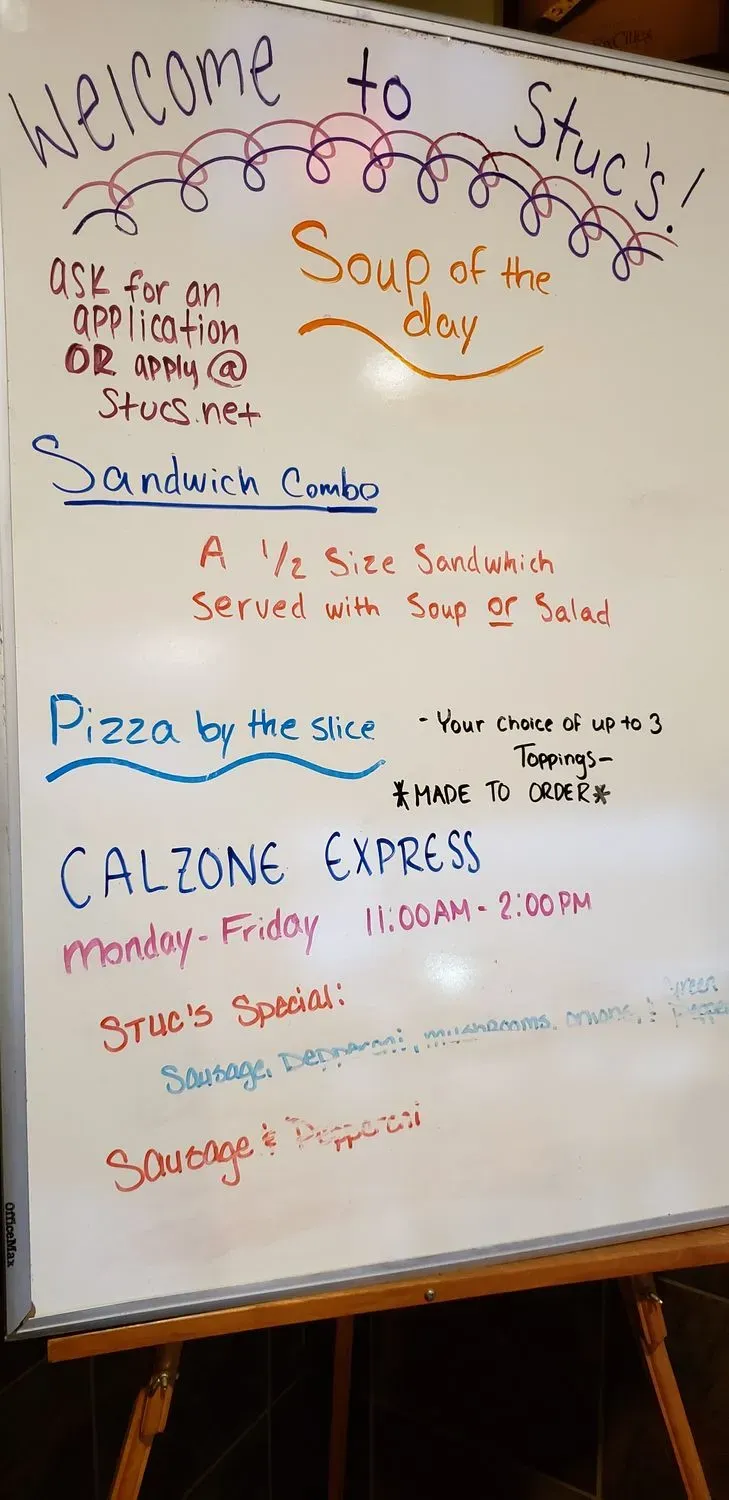 Welcome to Stuc's!
Soup of the
day
ASK for an
application
OR apply @
Stucs.net
Sandwich Combo
A 1/2 Size Sandwhich
Served with Soup or Salad
Pizza by the slice
- Your choice of up to 3
Toppings-
*MADE TO ORDER*
CALZONE EXPRESS
Monday - Friday 11:00AM - 2:00PM
STUC'S Special:
Sausage, Pepperoni, mushrooms, onions, & Green
Sausage & Pepperoni
OfficeMax